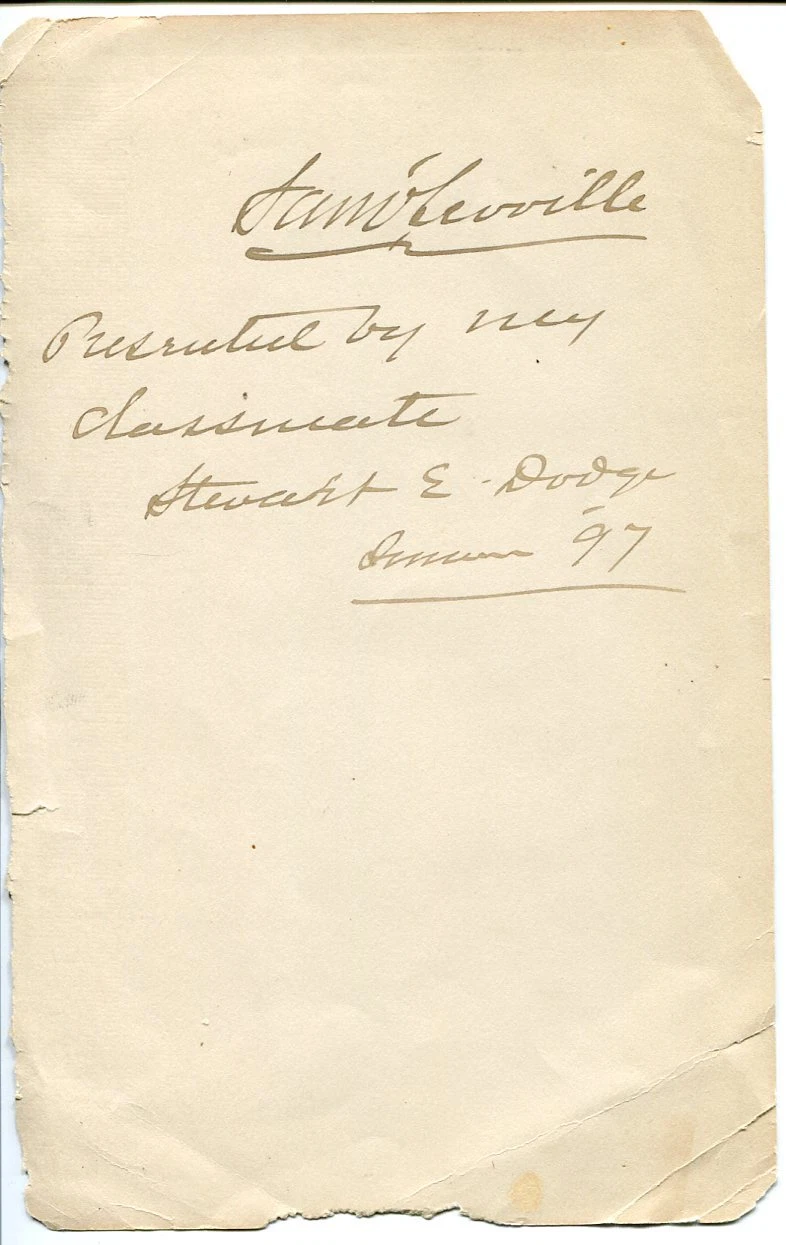 Sam'l Scoville
Presented by my
classmate
Stewart E. Dodge
Summer '97